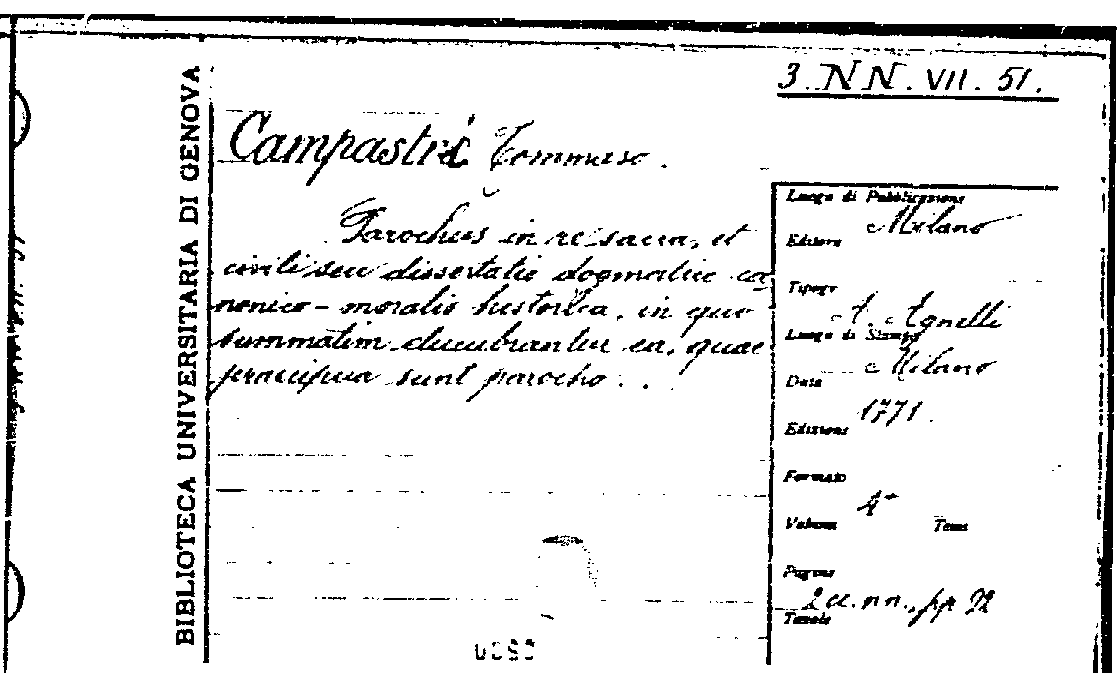 3. NN. VII. 51.
BIBLIOTECA UNIVERSITARIA DI GENOVA
Campastri Tommaso.
Parochus in re sacra, et
civili seu dissertatio dogmatico ca
nonico-moralis historica, in quo
summatim elucubrantur ea, quae
praecipua sunt parocho..
Luogo di Pubblicazione
Milano
Editore
Tipogr
A. Agnelli
Luogo di Stampa
Milano
Data
1771.
Edizione
Formato
4°
Volume Tomo
Pagine
2 cc. nn., pp 92
Tavole